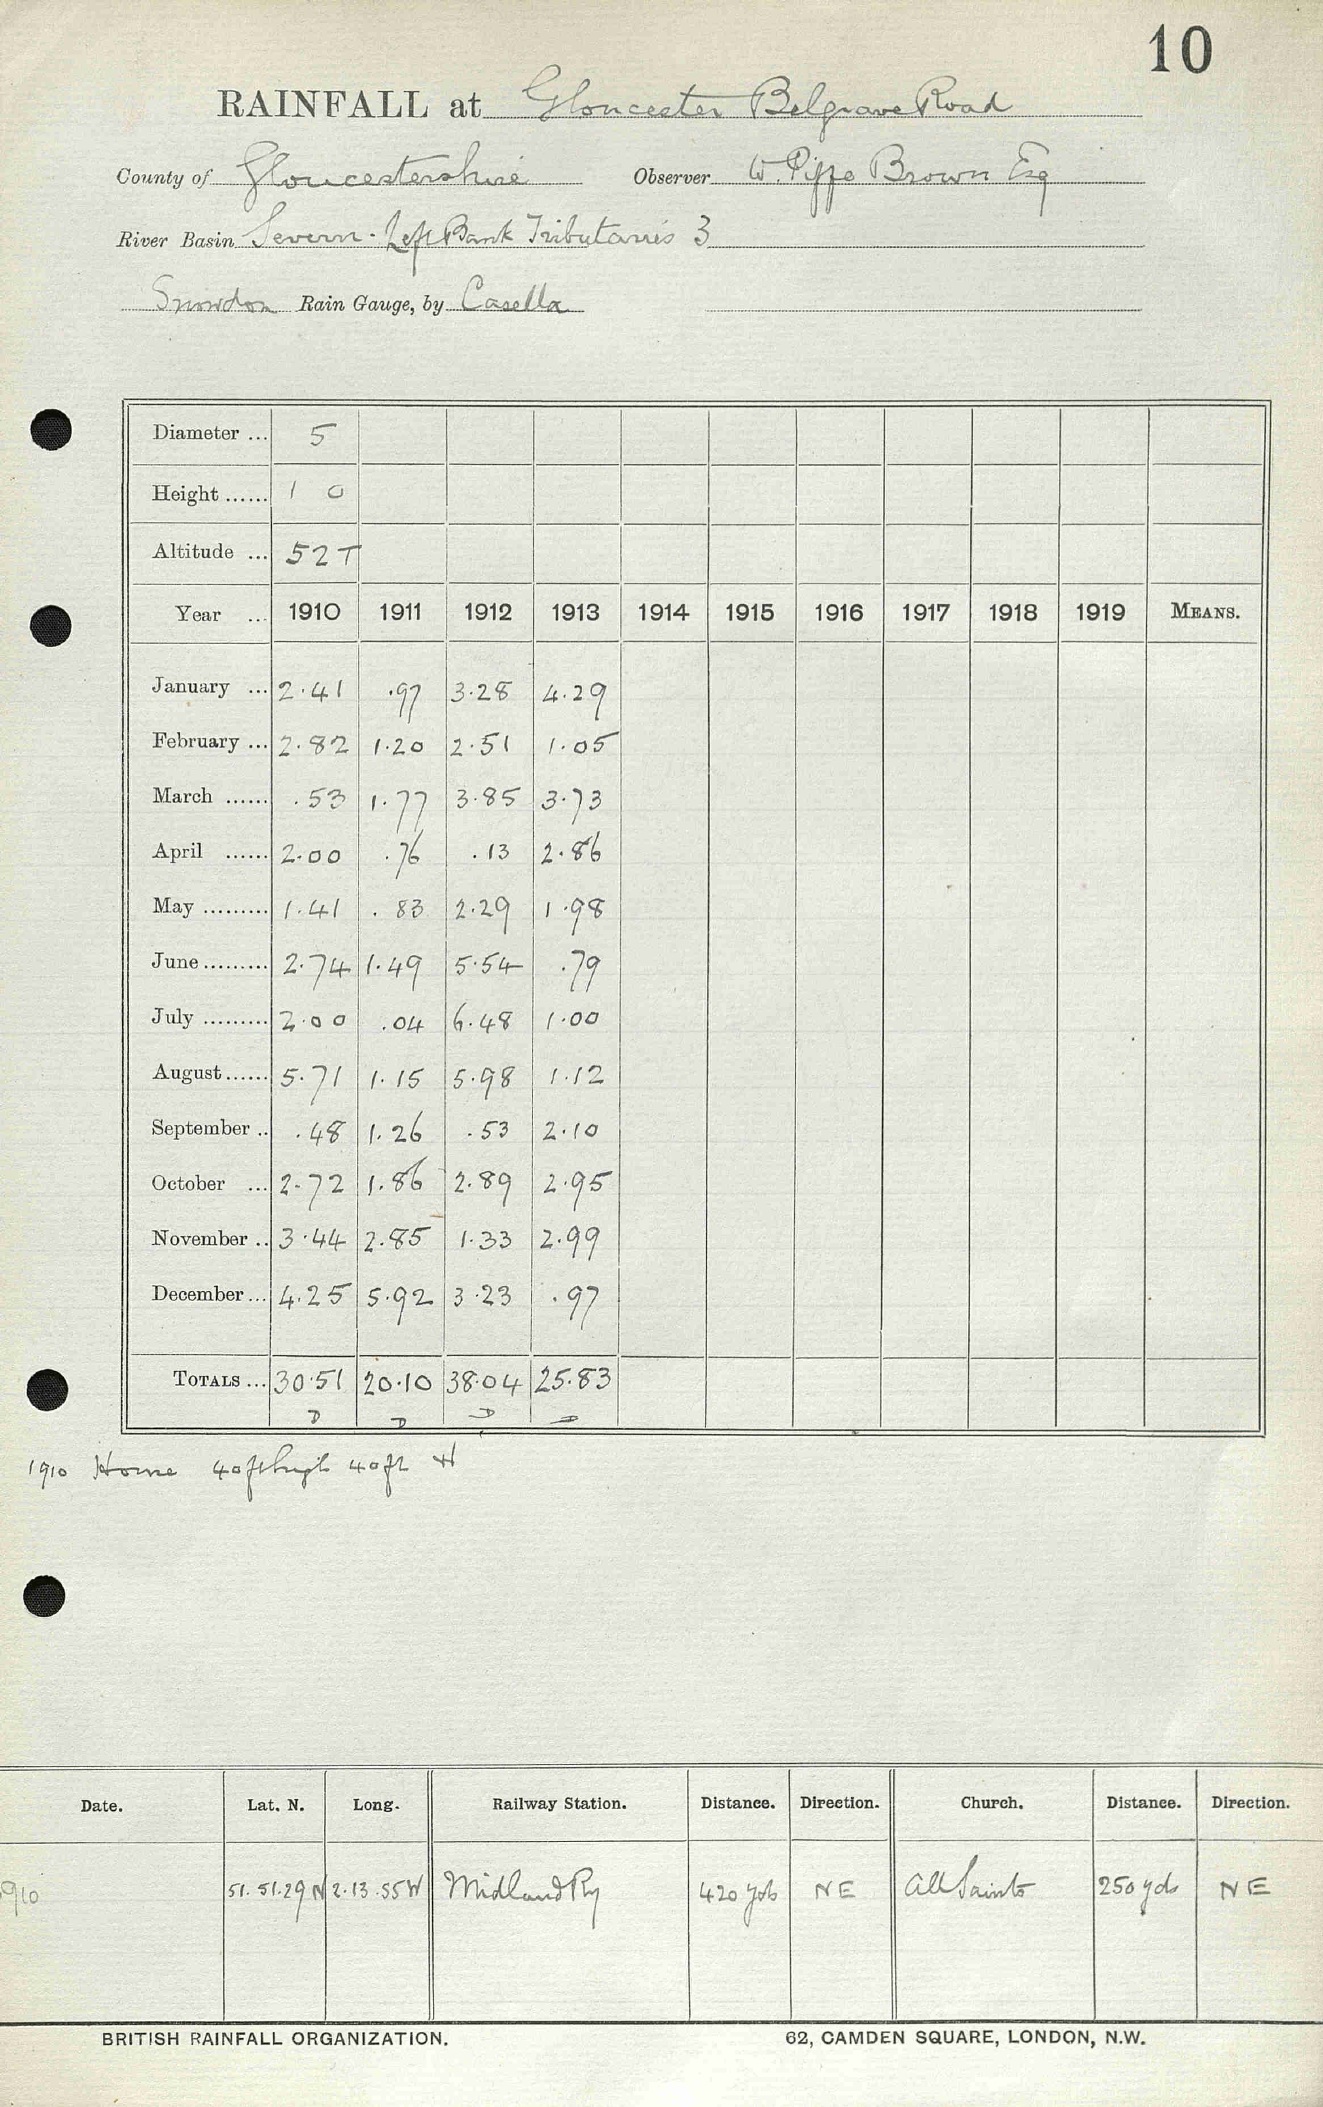 10
RAINFALL at Gloucester Belgrave Road
County of Gloucestershire Observer W. Piffe Brown Esq
River Basin Severn - Left Bank Tributaries 3
Snowdon Rain Gauge, by Casella
Diameter ... 5
Height ...... 1 0
Altitude ... 52 T
Year ... 1910 1911 1912 1913 1914 1915 1916 1917 1918 1919 MEANS.
January ... 2.41 .97 3.28 4.29
February ... 2.82 1.20 2.51 1.05
March ...... .53 1.77 3.85 3.73
April ...... 2.00 .76 .13 2.86
May ......... 1.41 .83 2.29 1.98
June ......... 2.74 1.49 5.54 .79
July ......... 2.00 .04 6.48 1.00
August ...... 5.71 1.15 5.98 1.12
September .. .48 1.26 .53 2.10
October ... 2.72 1.86 2.89 2.95
November .. 3.44 2.85 1.33 2.99
December ... 4.25 5.92 3.23 .97
TOTALS ... 30.51 20.10 38.04 25.83
D D D D
1910 40ft high 40ft
Date. Lat. N. Long. Railway Station. Distance. Direction. Church. Distance. Direction.
1910 51.51.29 N 2.13.55 W Midland Ry 420 yds NE All Saints 250 yds NE
BRITISH RAINFALL ORGANIZATION. 62, CAMDEN SQUARE, LONDON, N.W.